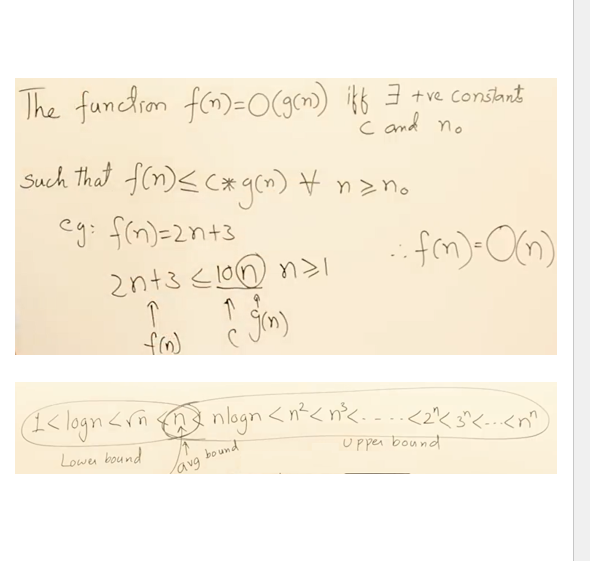 The function f(n)=O(g(n)) iff ∃ +ve constants
c and n₀
such that f(n) ≤ c*g(n) ∀ n ≥ n₀
eg: f(n)=2n+3
2n+3 ≤ 10n n≥1
∴ f(n)=O(n)
↑ ↑ ↑
f(n) c g(n)
1 < logn < √n < n < nlogn < n² < n³ < ---- < 2ⁿ < 3ⁿ < --- < nⁿ
Lower bound avg bound Upper bound